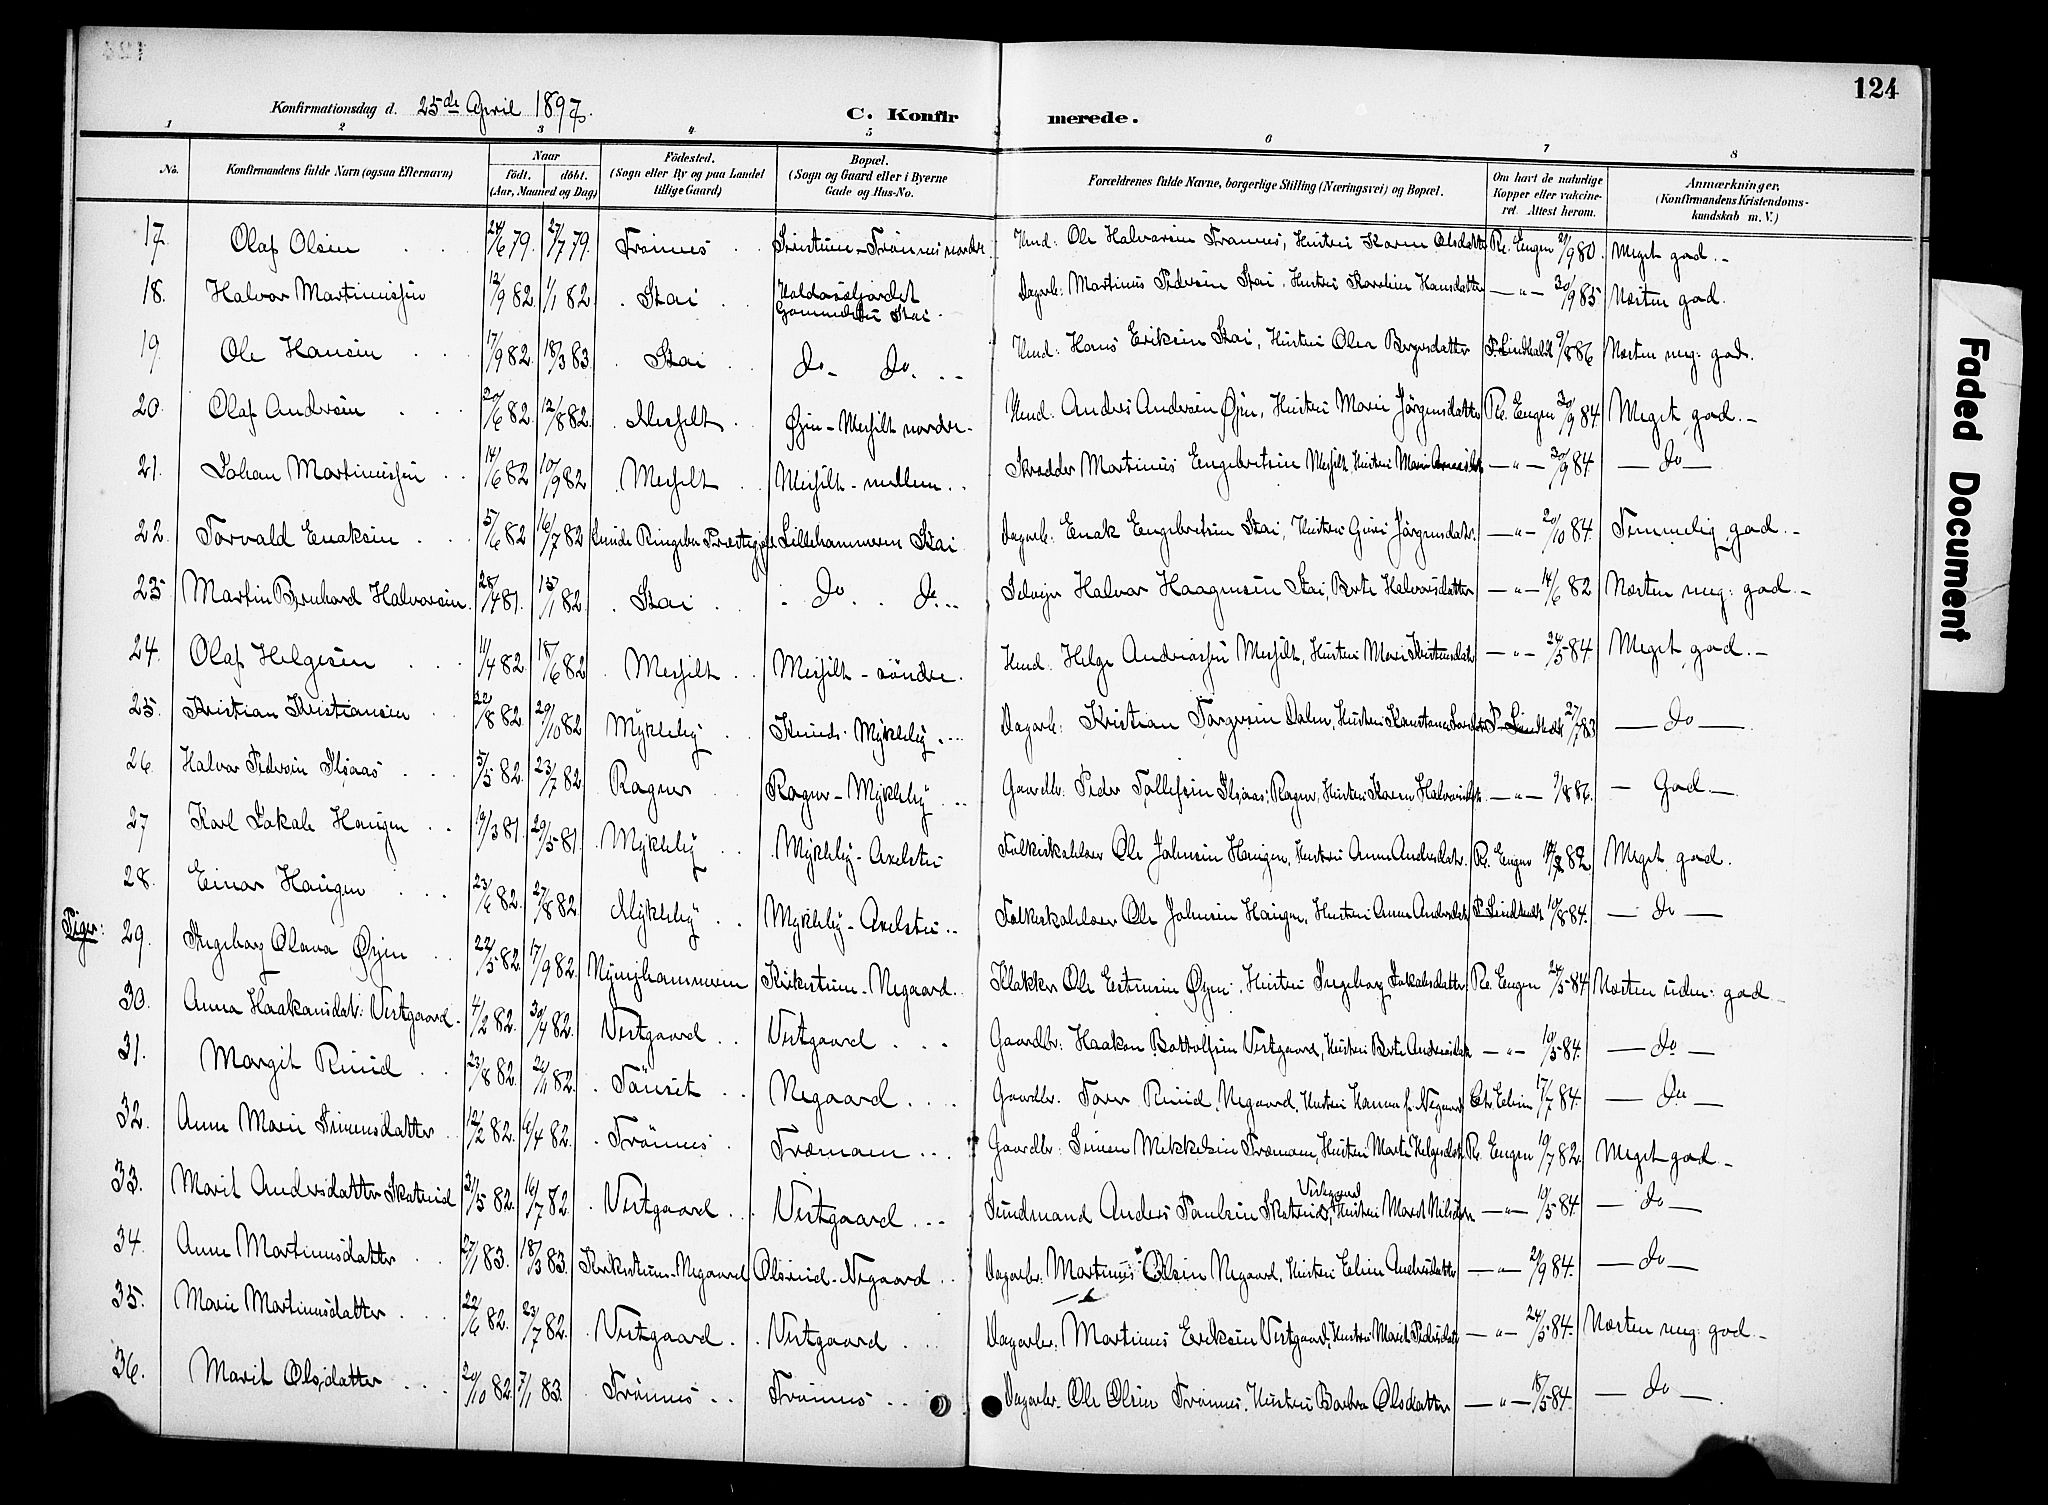 124
Konfirmationsdag d. 25de April 1897.
C. Konfirmerede.
1 2 3 4 5 6 7 8
No. Konfirmandens fulde Navn (ogsaa Efternavn) Naar födt. döbt. (Aar, Maaned og Dag) Födested. (Sogn eller By og paa Landet tillige Gaard) Bopæl. (Sogn og Gaard eller i Byerne Gade og Hus-No. Forældrenes fulde Navne, borgerlige Stilling (Næringsvei) og Bopæl. Om havt de naturlige Kopper eller vakcineret. Attest herom. Anmærkninger, (Konfirmandens Kristendomskundskab m. V.)
17. Olaf Olsen 24/6 79. 27/7 79. Trönnes Trönnes nordre Hmd: Ole Halvorsen Trönnes, Hustru Karen Olsdatter Re. Engen 21/9 80. Meget god.
18. Halvor Martinussen 12/9 82. 1/1 82. Stai Stai Dagarb: Martinus Pedersen Stai, Hustru Karoline Hansdatter —"— 30/9 85 Næsten god.
19. Ole Hansen 17/9 82. 18/3 83. Stai Do. Do. Hmd: Hans Eriksen Stai, Hustru Olea Bergersdatter P. Lindholdt 9/8 86 Næsten meg: god.
20. Olaf Andersen 20/6 82. 12/8 82. Messelt Øien - Messelt nordre Hmd: Anders Andersen Øien, Hustru Marie Jörgensdatter Re. Engen 30/9 84. Meget god.
21. Johan Martinussen 14/6 82 10/9 82 Messelt Messelt - mellem Skrædder Martinus Engebretsen Messelt Hustru Marie —"— 30/9 84 Do
22. Torvald Enoksen 5/6 82 16/7 82 Ringebu Præstegjeld Lillehammeren Stai Dagarb: Enok Engebretsen Stai, Hustru Guri Jörgensdatr. —"— 20/10 84. Temmelig god.
23. Martin Bernhard Halvorsen. 28/4 81. 15/1 82. Stai Do. Do. Selveier Halvor Haagensen Stai, Berte Halvorsdatter —"— 14/6 82 Næsten meg: god.
24. Olaf Helgesen 11/4 82. 18/6 82 Messelt Messelt - söndre. Hmd. Helge Andreassen Messelt, Hustru Mari Kristensdatr —"— 24/5 84. Meget god.
25. Kristian Kristiansen 22/8 82. 29/10 82 Mykleby Knuds. Mykleby Dagarb: Kristian Torgersen Dalen, Hustru P. Lindholdt 27/7 83 Do
26. Halvor Pedersen Ilsaas 5/5 82. 23/7 82. Ragner Ragner - Mykleby Gaardbr: Peder Tollefsen Ilsaas, Ragner, Hustru Karen Halvorsdtr. —"— 9/8 86. God.
27 Karl Jakob Haugen 19/3 81. 29/5 81. Mykleby Mykleby - Axelstu Folkeskolelærer Ole Johnsen Haugen, Hustru Anne Andersdatr. Re. Engen 82. Meget god.
28. Einar Haugen 23/6 82. 27/8 82. Mykleby Mykleby - Axelstu Folkeskolelærer Ole Johnsen Haugen, Hustru Anne Andersdatr P. Lindholdt 19/8 84. Do
Piger:
29. Ingeborg Olava Øien 22/5 82. 17/9 82. Nymjhammeren Kirkestuen - Negaard. Klokker Ole Estensen Øien, Hustru Ingeborg Jakobsdatter Re. Engen 24/5 84 Næsten uden: god
30. Anna Haakonsdat: Vestgaard. 4/2 82. 30/4 82. Vestgaard Vestgaard Gaardbr: Haakon Bottolfsen Vestgaard, Hustru Berte Andersdatr —"— 10/5 84. Do
31. Margit Ruud 23/8 82. 21/11 82. Tönset Negaard Gaardbr. Tore Ruud, Negaard, Hustru Hanna f. Negaard 17/7 84. Do
32. Anne Marie Simensdatter 12/2 82. 6/4 82. Trönnes Træmoen Gaardbr: Simen Mikkelsen Træmoen, Hustru Marte Helgesdatr. Re. Engen 19/7 82. Meget god.
33. Marit Andersdatter Skaterud 31/5 82. 16/7 82. Vestgaard Vestgaard Sundmand Anders Paulsen Skaterud, Vestgaard Hustru Marit Nilsdtr —"— 19/5 84. Do
34. Anne Martinusdatter 27/1 83. 18/3 83. Kirkestuen - Negaard Olsrud - Negaard Dagarbr: Martinus Olsen Negaard, Hustru Eline Andersdatter —"— 29/9 84. Do
35. Marie Martinusdatter 22/6 82. 23/7 82. Vestgaard Vestgaard Dagarbr: Martinus Eriksen Vestgaard, Hustru Marit Pedersdatr —"— 24/5 84. Næsten meg: god
36. Marit Olsdatter 20/10 82. 7/1 83. Trönnes Trönnes Dagarbr. Ole Olsen Trönnes, Hustru Barbra Olsdatter —"— 18/5 84. Do
Faded Document